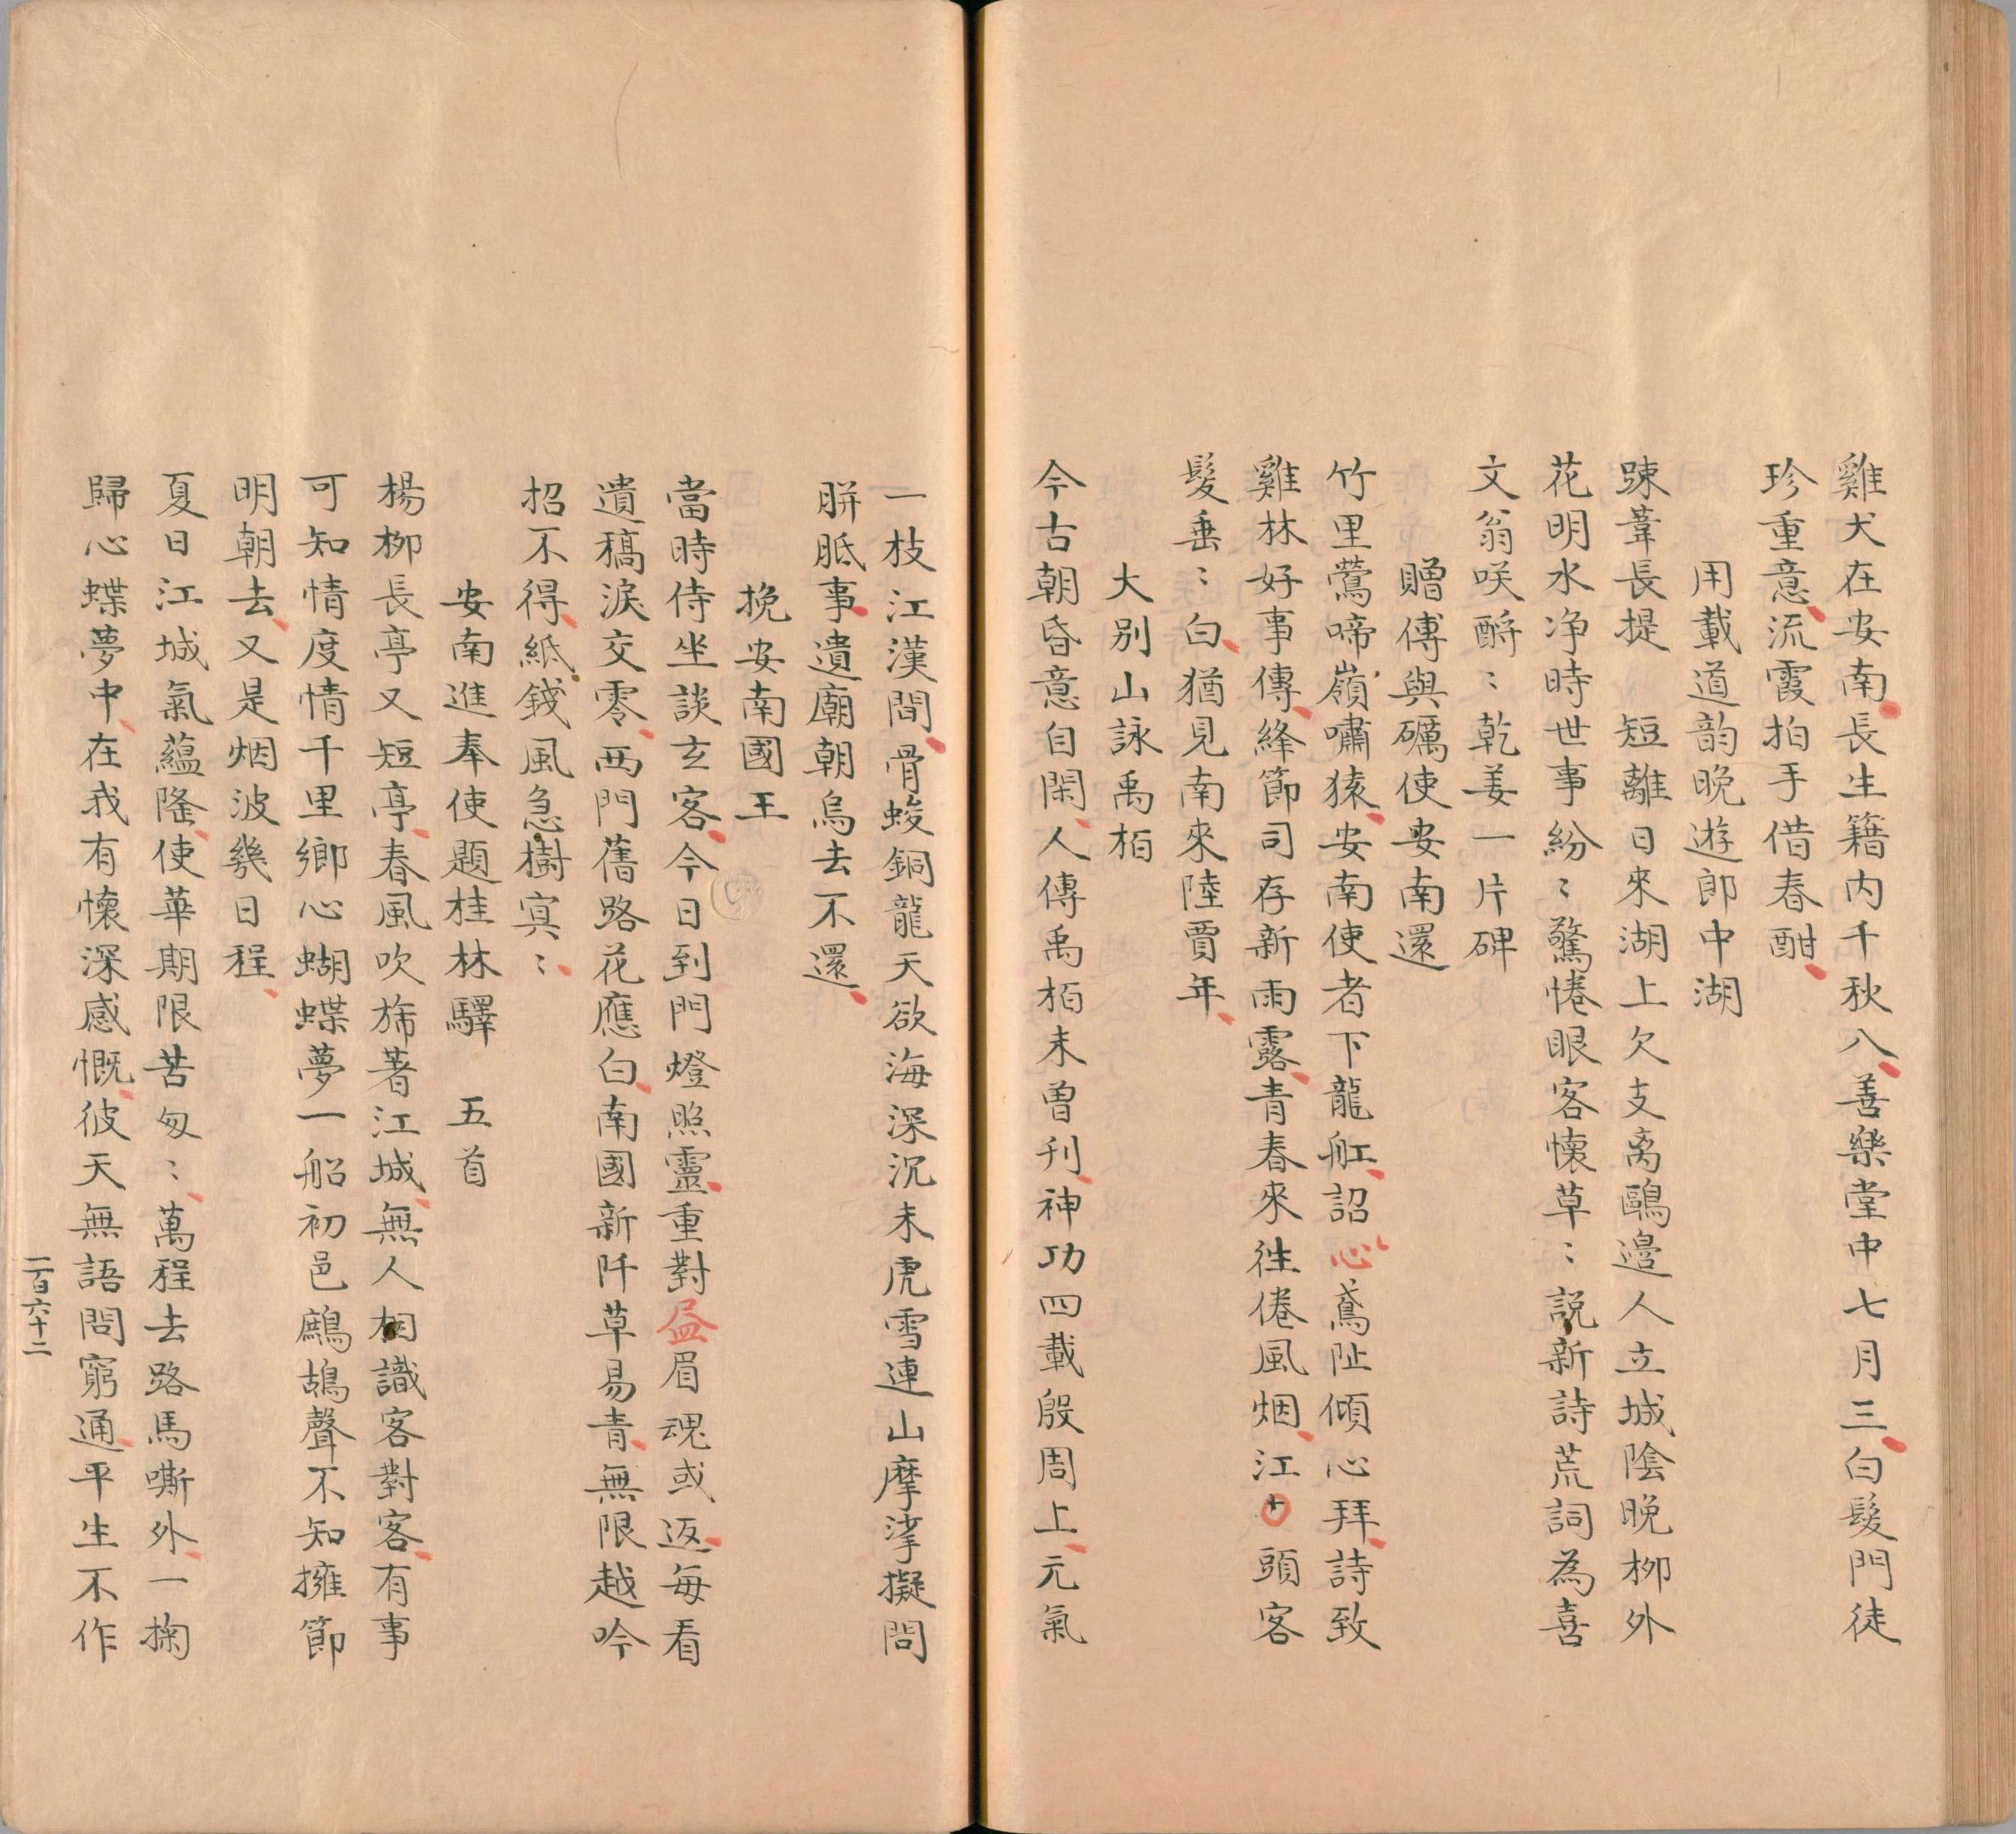 雞犬在安南長生籍内千秋八善樂堂中七月三白髮門徒
珍重意流霞拍手借春酣
用載道韵晩遊郎中湖
踈葦長提　短離日來湖上欠支离鷗邊人立城陰晚柳外
花明水净時世事紛〻驚惓眼客懷草〻説新詩荒詞為喜
文翁咲酹〻乾姜一片碑
贈傅與礪使安南還
竹里鶯啼嶺嘯猿安南使者下龍舡詔心鳶阯傾心拜詩致
雞林好事傳絳節司存新雨露青春來徃倦風烟江頭客
髮垂〻白猶見南來陸賈年
大别山詠禹栢
今古朝昏意自閑人傳禹栢未曾刋神功四載殷周上元氣
一枝江漢間骨蛻銅龍天欲海深沉未虎雪連山摩挲擬問
胼胝事遺廟朝烏去不還
挽安南國王
當時侍坐談玄客今日到門燈照靈重對益眉魂或返每看
遺稿淚交零西門舊路花應白南國新阡草易青無限越吟
招不得紙錢風急樹㝠〻
安南進奉使題桂林驛　五首
楊柳長亭又短亭春風吹斾著江城無人相識客對客有事
可知情度情千里鄉心蝴蝶夢一船初邑鷓鴣聲不知擁節
明朝去又是烟波幾日程
夏日江城氣藴隆使華期限苦匆〻萬程去路馬嘶外一掬
歸心蝶夢中在我有懷深感慨彼天無語問窮通平生不作
二百六十二